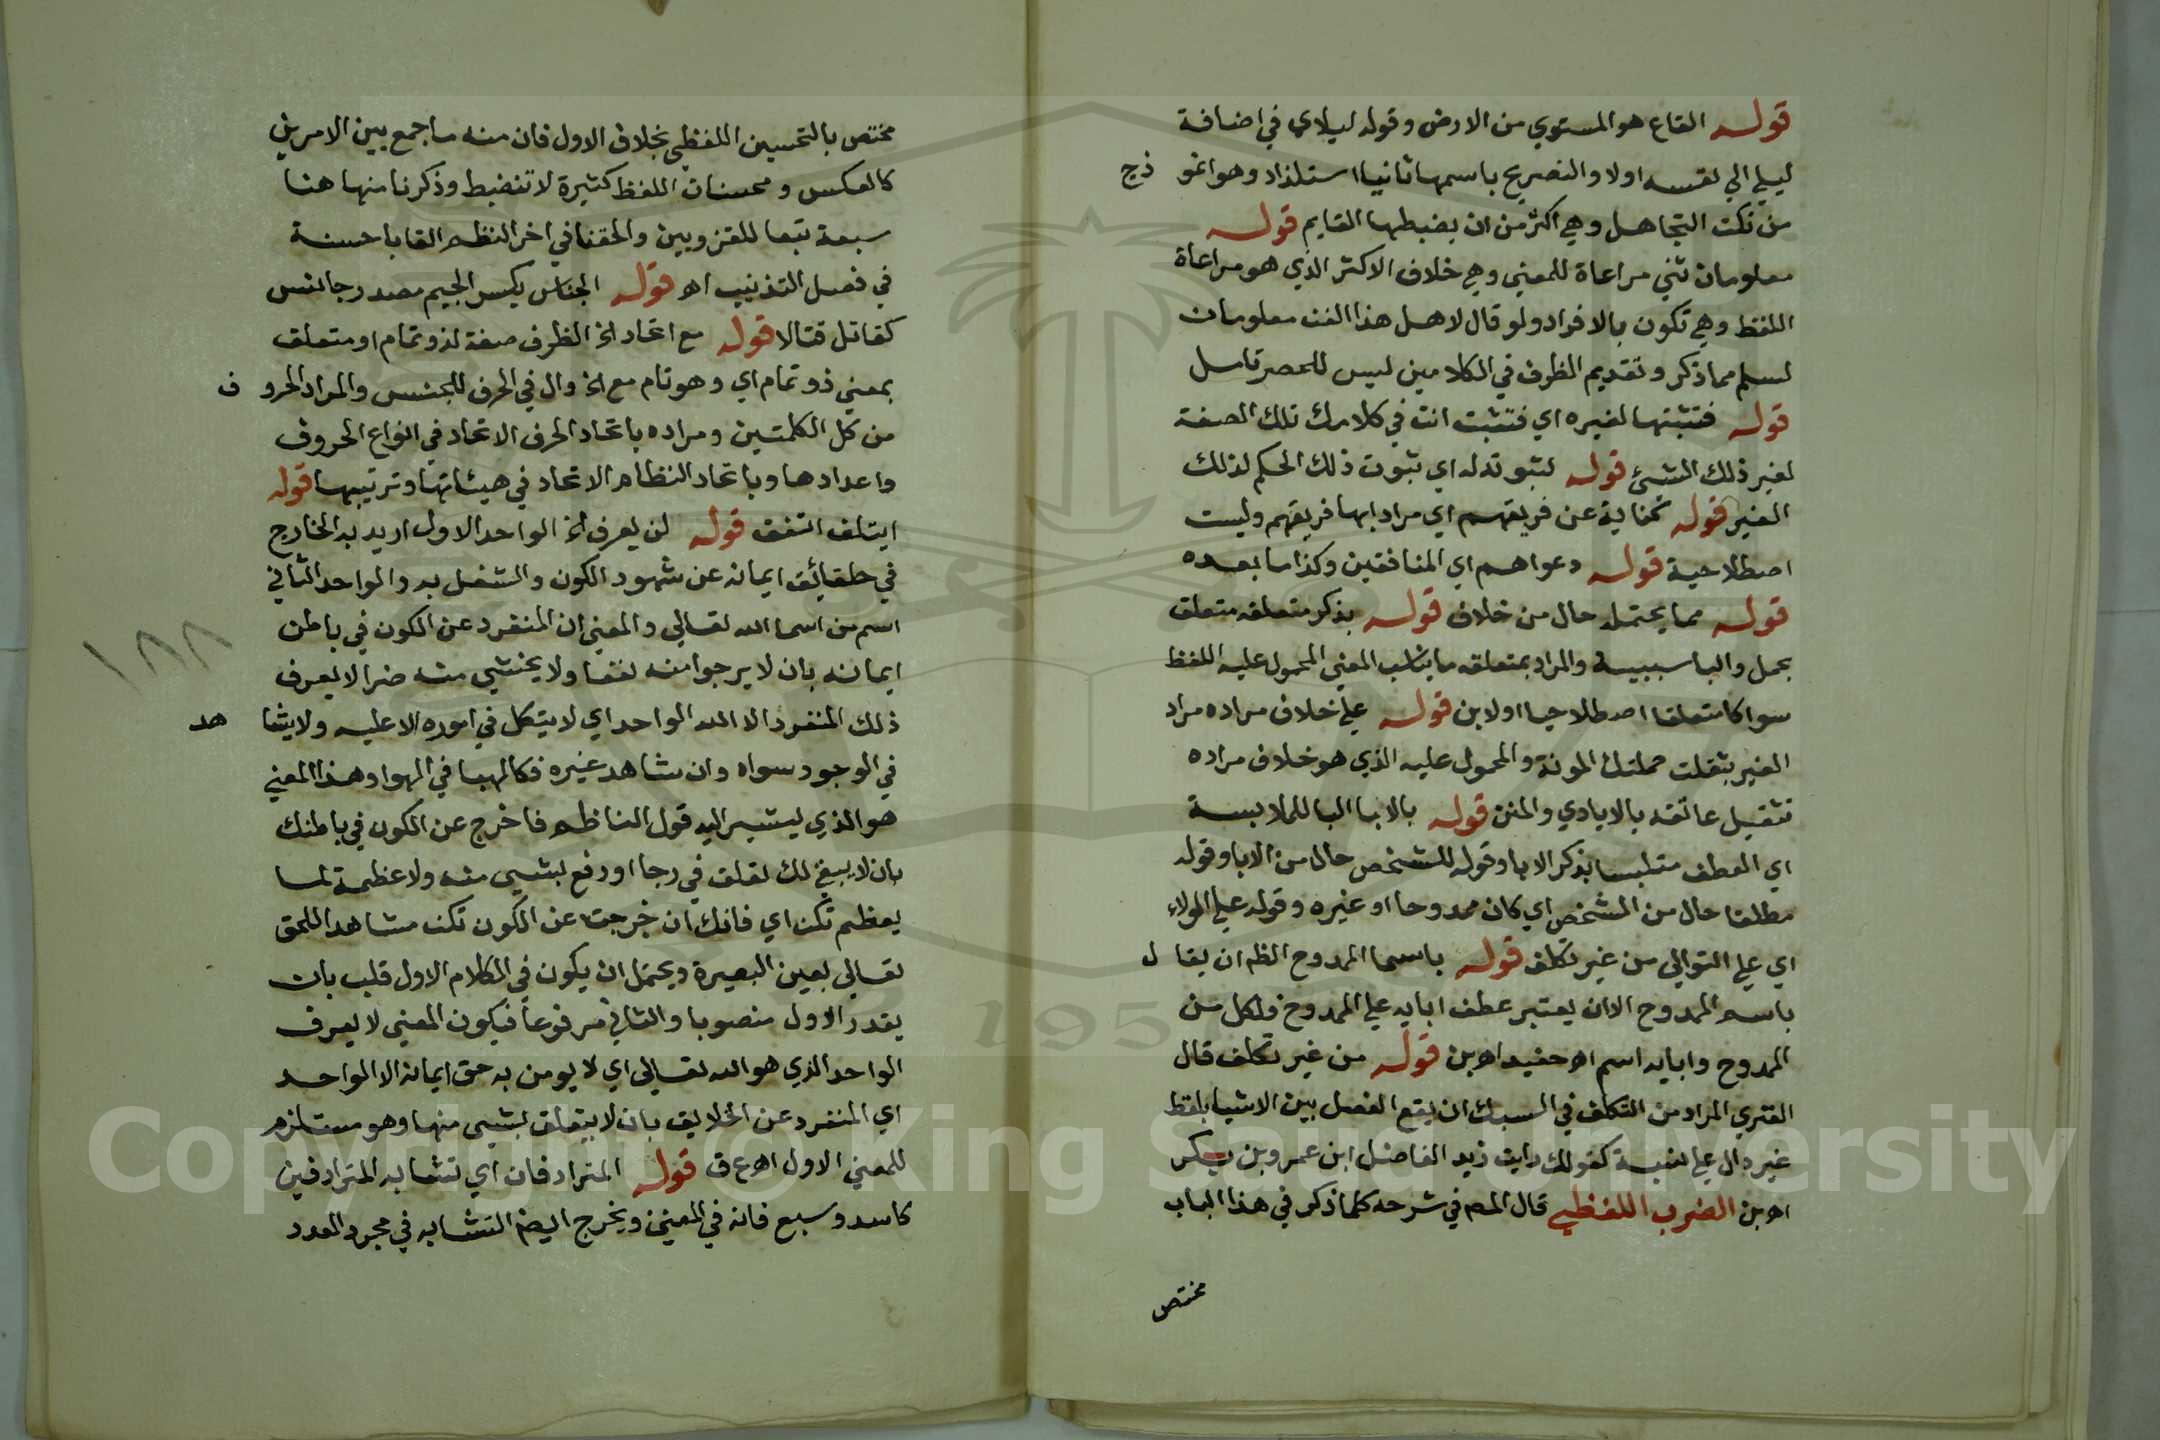 قوله القاع هو المستوي من الارض وقوله ليلاي في اضافة
ليلي الي نفسه اولا والتصريح باسمها ثانيا استلذاذ وهو انموذج
من نكت التجاهل وهي اكثر من ان يضبطها القايم قوله
معلومان ثني مراعاة للمعني وهي خلاف الاكثر الذي هو مراعاة
اللفظ وهي تكون بالافراد ولو قال لاهل هذا الفن معلومان
لسلم مما ذكر وتقديم الظرف في الكلامين ليس للحصر تامل
قوله فتثبتها لغيره اي فتثبت انت في كلامك تلك الصفة
لغير ذلك الشئ قوله لثبوته له اي ثبوت ذلك الحكم لذلك
الغير قوله كناية عن فريقهم اي مرادا بها فريقهم وليست
اصطلاحية قوله دعواهم اي المنافقين وكذا ما بعده
قوله مما يحتمله حال من خلاف قوله بذكر متعلقه متعلق
بحمل والبا سببية والمراد بمتعلقه ما يناسب المعني المحمول عليه اللفظ
سوا كا متعلقا اصطلاحيا اولا بن قوله علي خلاف مراده مراد
الغير بثقلت حملتك المونة والمحمول عليه الذي هو خلاف مراده
تثقيل عاتقه بالايادي والمنن قوله بالابا البا للملابسة
اي العطف متلبسا بذكر الابا وقوله للشخص حال من الابا وقوله
مطلقا حال من الشخص اي كان ممدوحا او غيره وقوله علي الولاء
اي علي التوالي من غير تكلف قوله باسما الممدوح الظم ان يقال
باسم الممدوح الا ان يعتبر عطف ابايه علي الممدوح ولكل من
الممدوح وابايه اسم اه حفيد اه بن قوله من غير تكلف قال
الفنري المراد من التكلف في السبك ان يقع الفصل بين الاشيا بلفظ
غير دال علي نسبة كقولك رايت زيد الفاضل ابن عمرو بن بكر
اه بن الضرب اللفظي قال المص في شرحه كلما ذكر في هذا الباب
مختص
مختص بالتحسين اللفظي بخلاف الاول فان منه ما جمع بين الامرين
كالعكس ومحسنات اللفظ كثيرة لا تنضبط وذكرنا منها هنا
سبعة تبعا للقزويين والحقنا في اخر النظم القابا حسنة
في فصل التذنيب اه قوله الجناس بكسر الجيم مصدر جانس
كقاتل قتالا قوله مع اتحاد الخ الظرف صفة لذو تمام او متعلق
بمعني ذو تمام اي وهو تام مع الخ وال في الحرف للجنس والمراد الحروف
من كل الكلمتين ومراده باتحاد الحرف الاتحاد في انواع الحروف
واعدادها وباتحاد النظام الاتحاد في هيئاتها وترتيبها قوله
ايتلف اتفق قوله لن يعرف الخ الواحد الاول اريد به الخارج
في حقائق ايمانه عن شهود الكون والشغل به والواحد الثاني
اسم من اسما الله تعالي والمعني ان المنفرد عن الكون في باطن
ايمانه بان لا يرجوا منه نفعا ولا يخشي منه ضرا لا يعرف
ذلك المنفرد الا الله الواحد اي لا يتكل في اموره الا عليه ولا يشاهد
في الوجود سواه وان شاهد غيره فكالهبا في الهوا وهذا المعني
هو الذي يشير اليه قول الناظم فاخرج عن الكون في باطنك
بان لا يبقي لك تعلق في رجا او رفع بشيى منه ولا عظمة لما
يعظم تكن اي فانك ان خرجت عن الكون تكن مشاهدا للحق
تعالي بعين البصيرة ويحتمل ان يكون في الكلام الاول قلب بان
يقدر الاول منصوبا والثاني مرفوعا فيكون المعني لا يعرف
الواحد الذي هو الله تعالي اي لا يومن به حق ايمانه الا الواحد
اي المنفرد عن الخلايق بان لا يتعلق بشيى منها وهو مستلزم
للمعني الاول اه ع ق قوله المترادفان اي تشابه المترادفين
كاسد وسبع فانه في المعني ويخرج ايضا التشابه في مجرد العدد
١٨٨